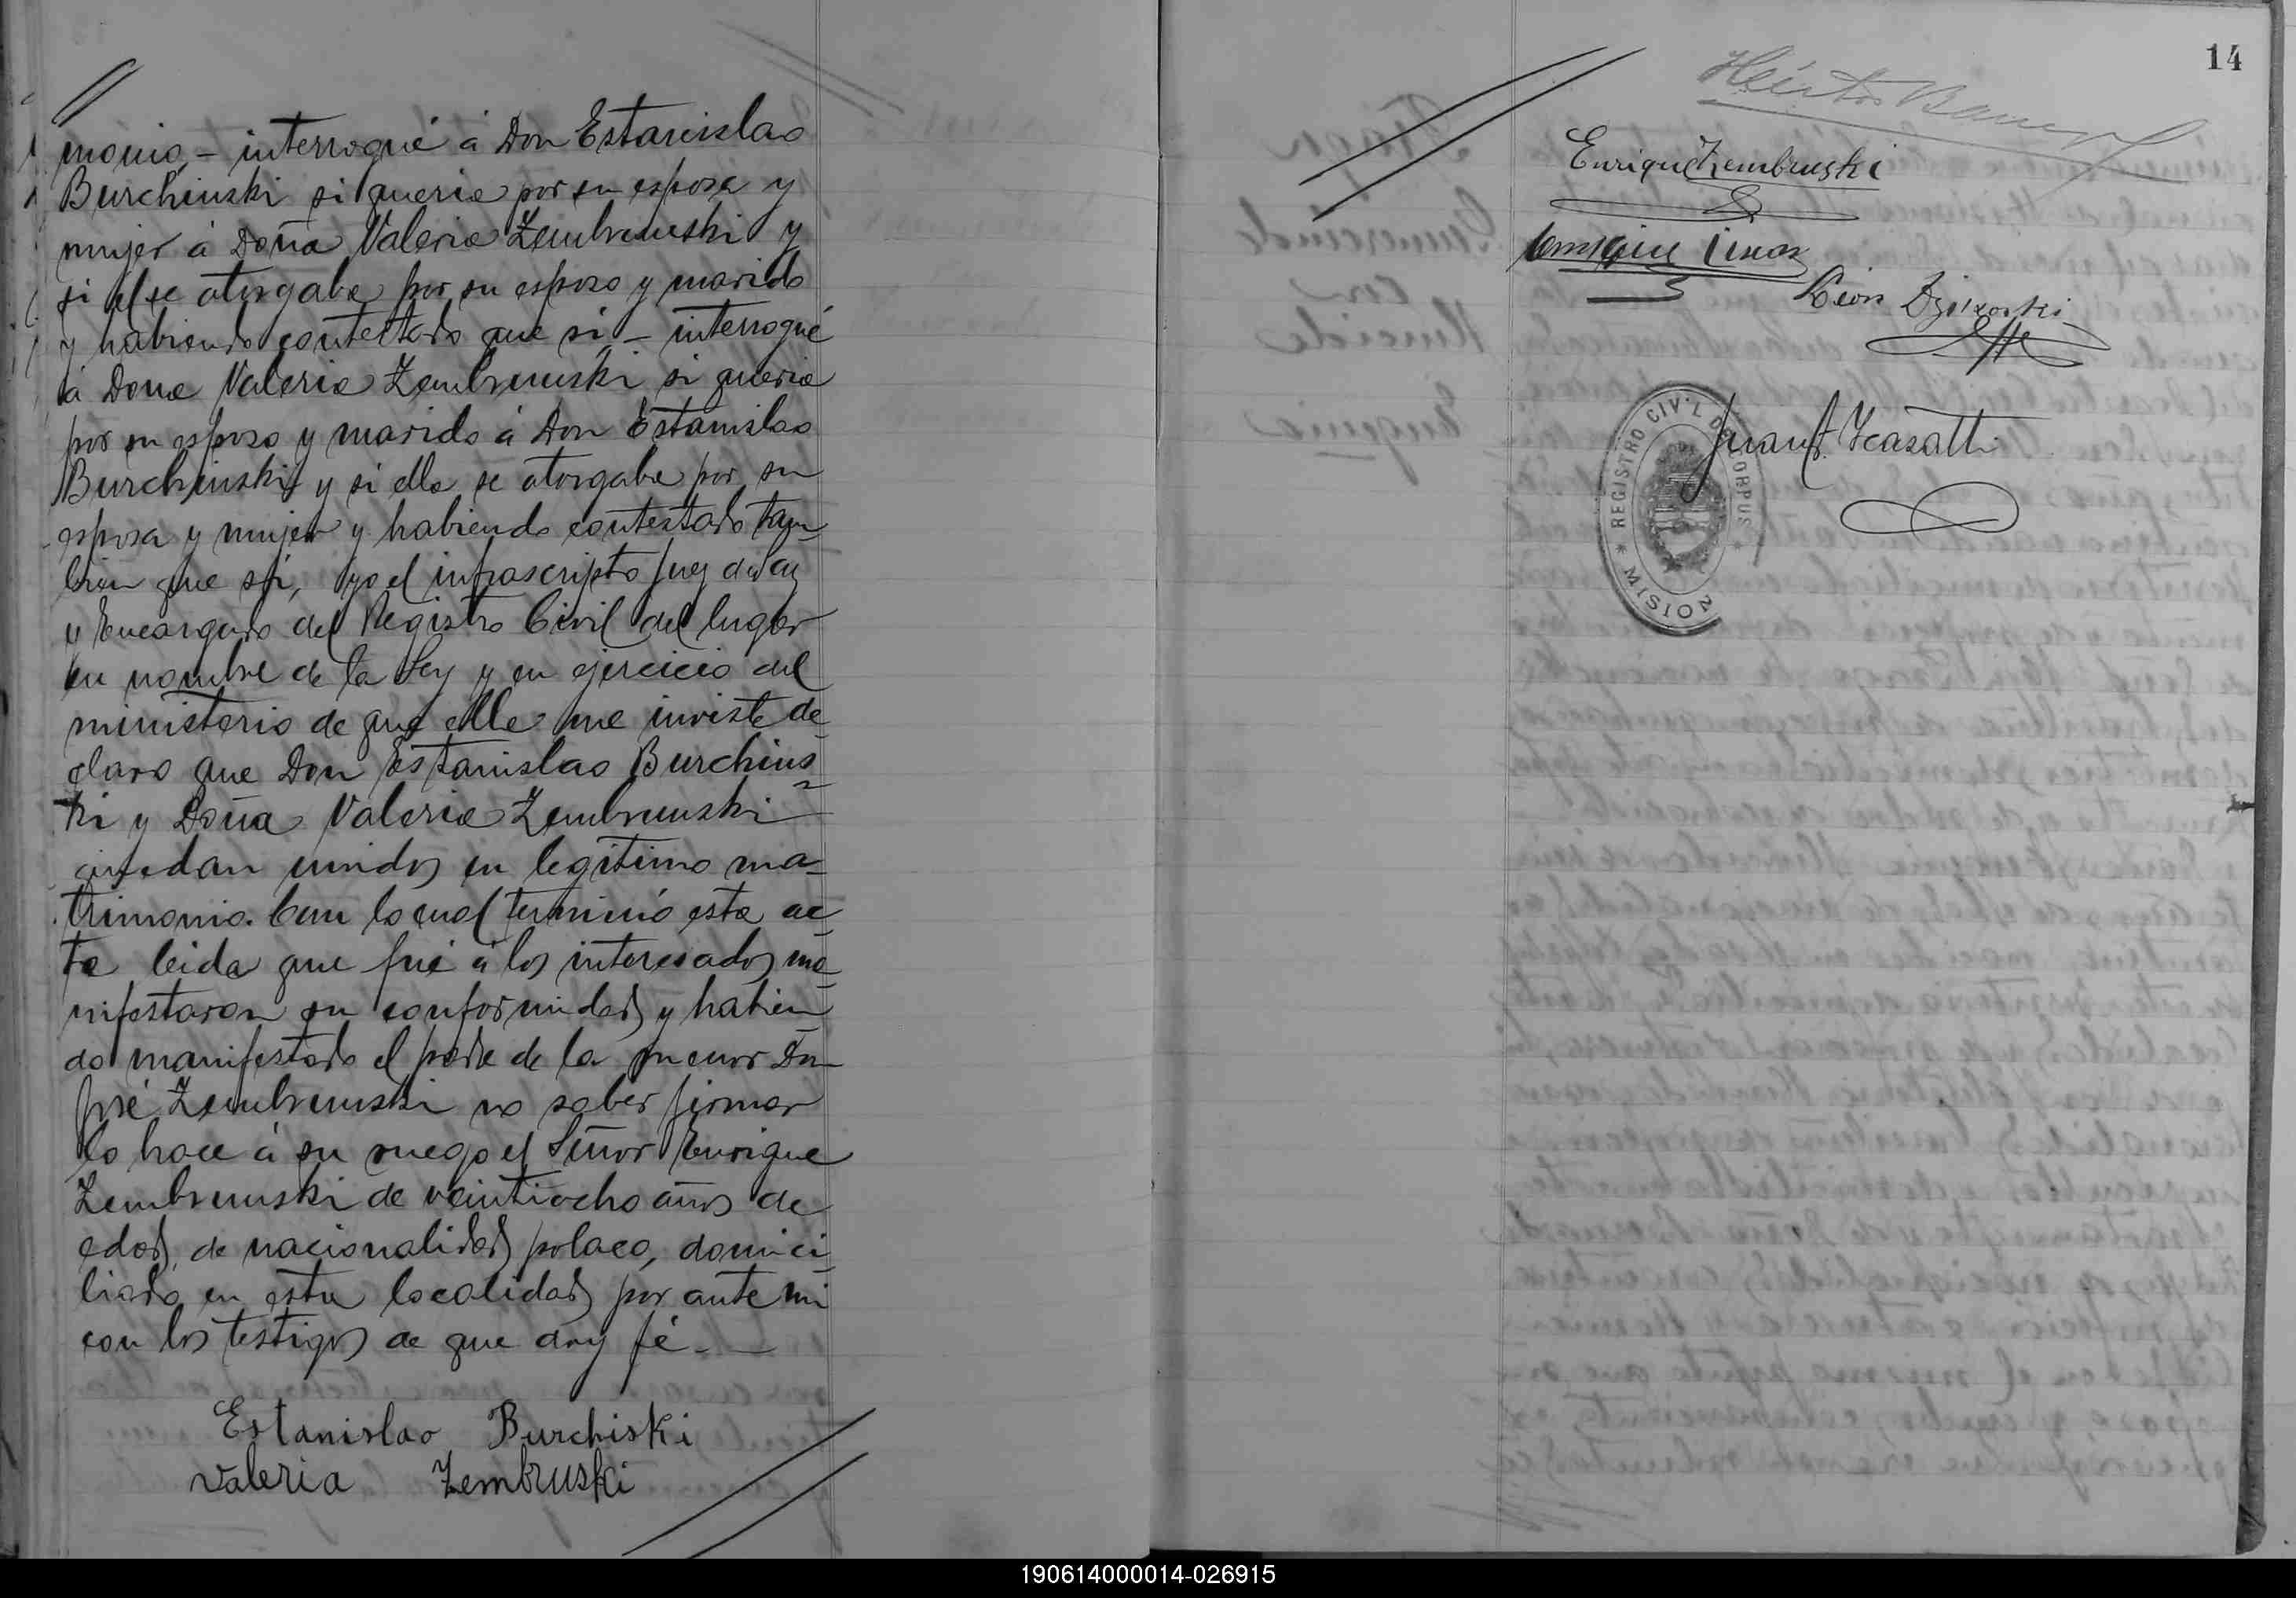 monio,- interrogué á Don Estanislao
Burchinski si queria por su esposa y
mujer á Doña Valeria Zembrunski y
si el se otorgaba por su esposo y marido
y habiendo contestado que si, - interrogué
á Doña Valeria Zembrunski si queria
por su esposo y marido á Don Estanislao
Burchinski y si ella se otorgaba por su
esposa y mujer y habiendo contestado tam-
bien que si, yo el infrascripto Juez de Paz
y Encargado del Registro Civil del lugar
en nombre de la Ley y en ejercicio del
ministerio de que ella me inviste de-
claro que Don Estanislao Burchins-
ki y Doña Valeria Zembrunski
quedan unidos en legitimo ma-
trimonio. Con lo cual terminó esta ac-
ta leida que fué á los interesados ma-
nifestaron su conformidad y habien-
do manifestado el padre de la menor Dn
José Zembrunski no saber firmar
lo hace á su ruego el Señor Enrique
Zembrunski de veintiocho años de
edad, de nacionalidad polaco, domici-
liado en esta localidad por ante mi
con los testigos de que doy fé.-
Estanislao Burchiski
Valeria Zembruski
14
Héctor
Enrique Zembruski
León
Juan
REGISTRO CIVIL DE CORPUS
* MISIONES *
190614000014-026915